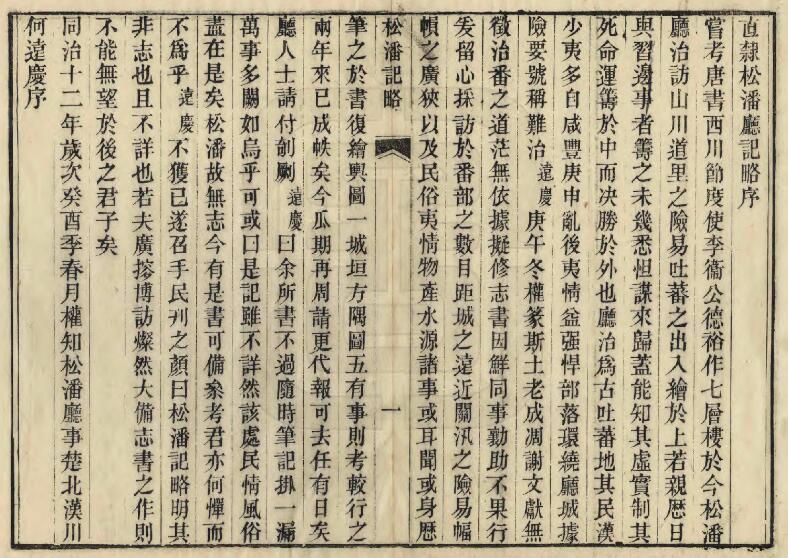 直隸松潘廳記略序
嘗考唐書西川節度使李衞公德裕作七層樓於今松潘
廳治訪山川道里之險易吐蕃之出入繪於上若親歷日
與習邊事者籌之未幾悉怛謀來歸蓋能知其虛實制其
死命運籌於中而决勝於外也廳治為古吐蕃地其民漢
少夷多自咸豐庚申亂後夷情益强悍部落環繞廳城據
險要號稱難治遠慶庚午冬權篆斯土老成凋謝文獻無
徵治番之道茫無依據擬修志書因鮮同事勷助不果行
爰留心採訪於番部之數目距城之遠近關汛之險易幅
幀之廣狹以及民俗夷情物產水源諸事或耳聞或身歷
松潘記略 一
筆之於書復繪輿圖一城垣方隅圖五有事則考較行之
兩年來已成帙矣今瓜期再周請更代報可去任有日矣
廳人士請付剞劂遠慶曰余所書不過隨時筆記掛一漏
萬事多闕如烏乎可或曰是記雖不詳然該處民情風俗
盡在是矣松潘故無志今有是書可備叅考君亦何憚而
不為乎遠慶不獲已遂召手民刋之顏曰松潘記略明其
非志也且不詳也若夫廣搜博訪燦然大備志書之作則
不能無望於後之君子矣
同治十二年歲次癸酉季春月權知松潘廳事楚北漢川
何遠慶序